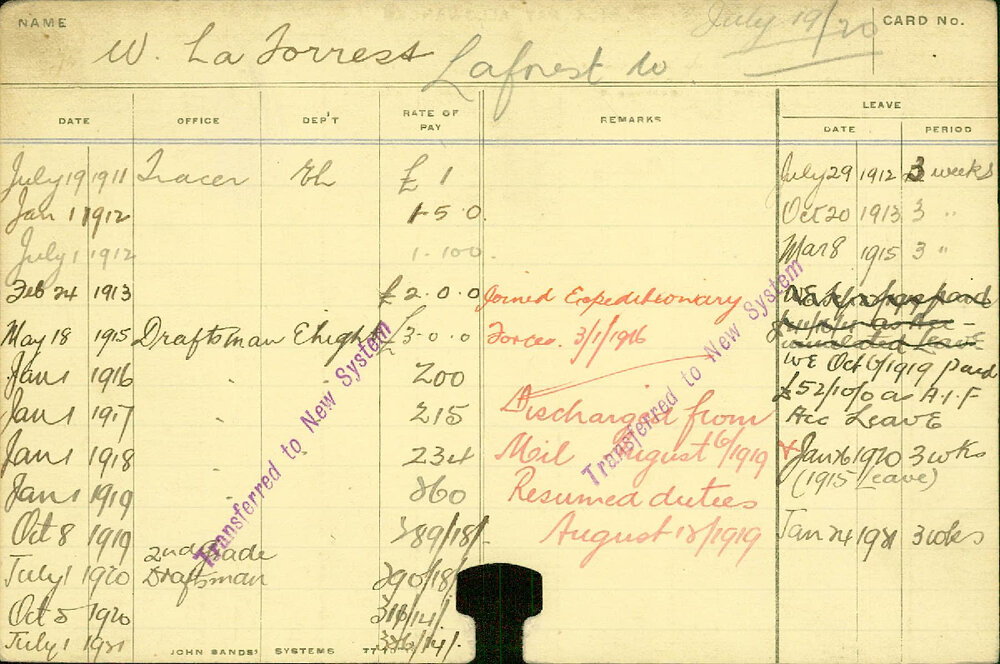 NAME W. La Forrest Laforest W July 19/20 CARD No.
DATE OFFICE DEP'T RATE OF PAY REMARKS LEAVE
DATE PERIOD
July 19 1911 Tracer £ 1 July 29 1912 3 weeks
Jan 1 1912 1-5-0 Oct 20 1913 3 "
July 1 1912 1-10-0 Mar 8 1915 3 "
Feb 24 1913 £2.0.0 Joined Expeditionary
May 18 1915 Draftsman £3.0.0 Forces. 3/1/1916
WE Oct 6/1919 paid
Jan 1 1916 " 200
£52/10/0 as A.I.F
Jan 1 1917 " 215 Discharged from Acc Leave
Jan 1 1918 " 234 Mil August 6/1919 Jan 26 1920 3 wks
(1915 Leave)
Jan 1 1919 " 260 Resumed duties
Oct 8 1919 289/18/- August 18/1919 Jan 24 1921 3 wks
2nd Grade
July 1 1920 Draftsman 290/18/
Oct 5 1920 318/14/
July 1 1921 336/14/.
Transferred to New System
Transferred to New System
JOHN SANDS' SYSTEMS